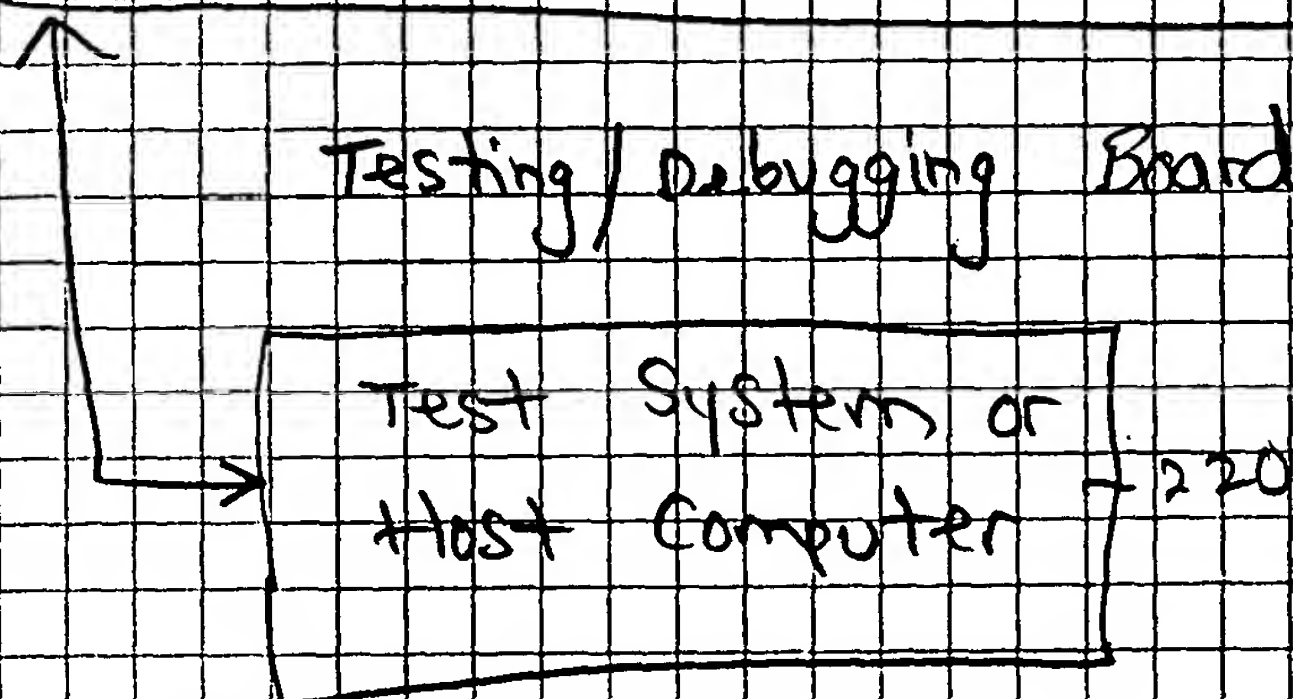 Testing / Debugging Board
Test System or
Host Computer
220